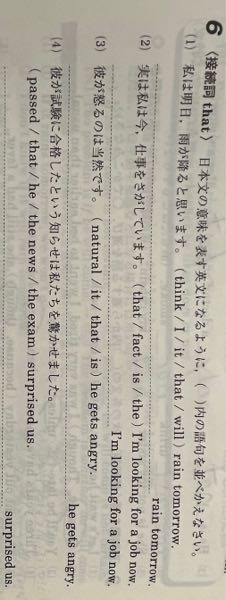 6 〈接続詞 that〉 日本文の意味を表す英文になるように，( )内の語句を並べかえなさい。
(1) 私は明日，雨が降ると思います。 ( think / I / it / that / will ) rain tomorrow.
rain tomorrow.
(2) 実は私は今，仕事をさがしています。 ( that / fact / is / the ) I'm looking for a job now.
I'm looking for a job now.
(3) 彼が怒るのは当然です。 ( natural / it / that / is ) he gets angry.
he gets angry.
(4) 彼が試験に合格したという知らせは私たちを驚かせました。
( passed / that / he / the news / the exam ) surprised us.
surprised us.